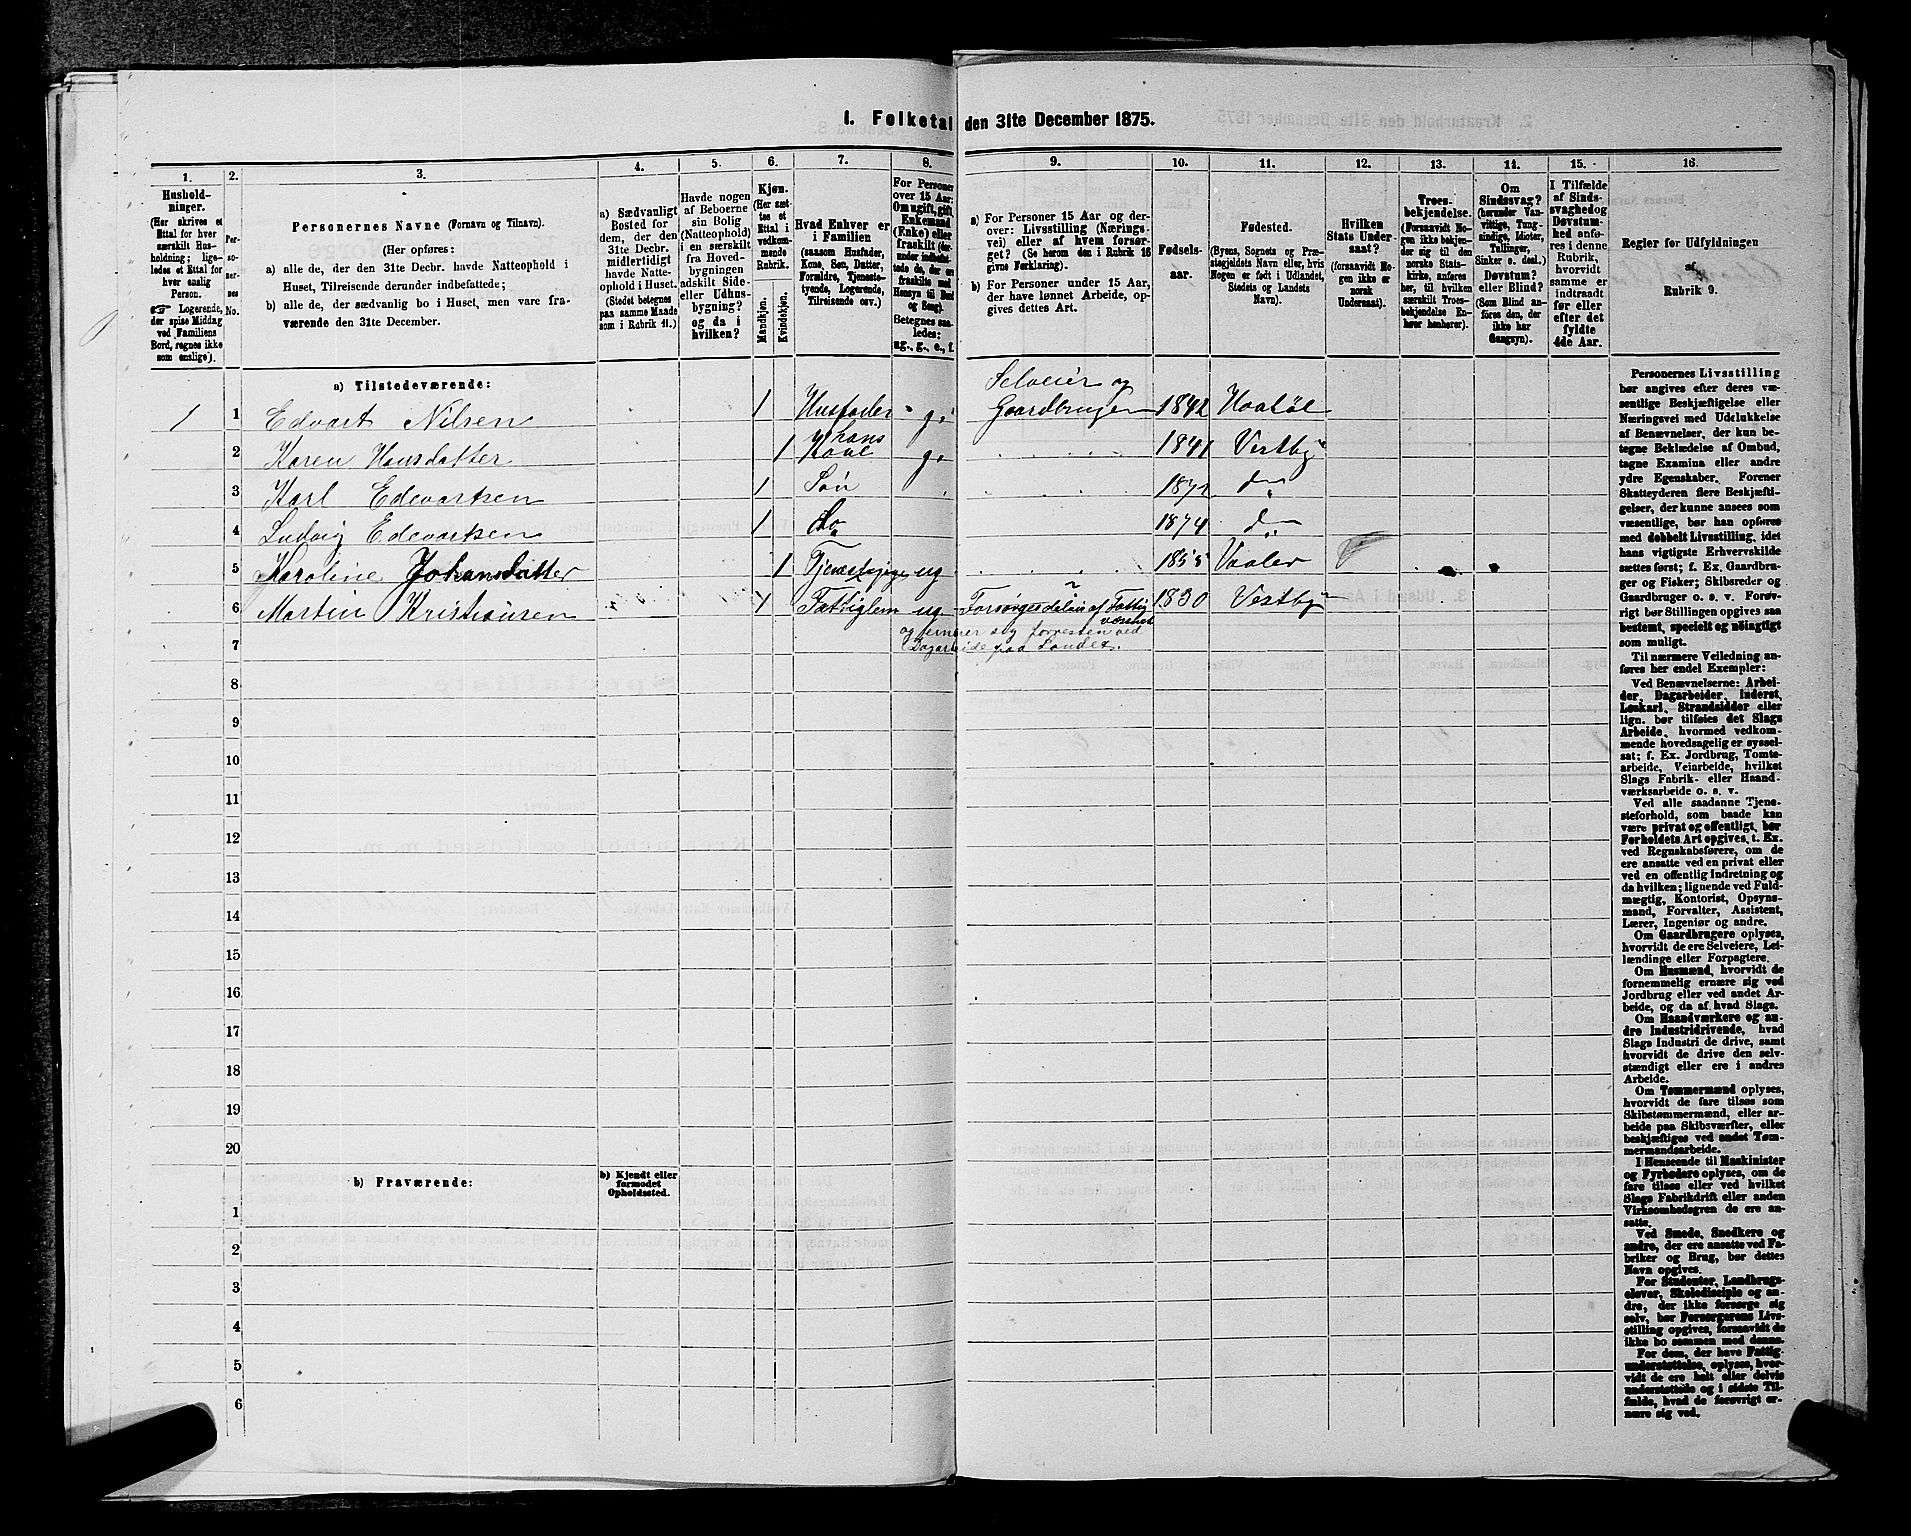 1. Folketal den 31te December 1875.
1. 2. 3. 4. 5. 6. 7. 8. 9. 10. 11. 12. 13. 14. 15. 16.
Hushold-
ninger.
(Her skrives et
Ettal for hver
særskilt Hus-
holdning; lige-
ledes et Ettal for
hver enslig
Person.
☞ Logerende,
der spise Middag
ved Familiens
Bord, regnes ikke
som enslige).
Per-
so-
ner-
nes
No.
Personernes Navne (Fornavn og Tilnavn).
(Her opføres:
a) alle de, der den 31te Decbr. havde Natteophold i
Huset, Tilreisende derunder indbefattede;
b) alle de, der sædvanlig bo i Huset, men vare fra-
værende den 31te December.
a) Sædvanligt
Bosted for
dem, der den
31te Decbr.
midlertidigt
havde Natte-
ophold i Huset.
(Stedet betegnes
paa samme Maade
som i Rubrik 11.)
Havde nogen
af Beboerne
sin Bolig
(Natteophold)
i en særskilt
fra Hoved-
bygningen
adskilt Side-
eller Udhus-
bygning?
og da i
hvilken?
Kjøn.
(Her sæt-
tes et
Ettal i
vedkom-
mende
Rubrik.
Mandkjøn.
Kvindekjøn.
Hvad Enhver er
i Familien
(saasom Husfader,
Kone, Søn, Datter,
Forældre, Tjeneste-
tyende, Logerende,
Tilreisende osv.)
For Personer
over 15 Aar:
Om ugift, gift,
Enkemand
(Enke) eller
fraskilt (der-
under indbefat-
tede de, der ere
fraskilte med
Hensyn til Bord
og Seng).
Betegnes saa-
ledes:
ug., g., e., f.
a) For Personer 15 Aar og der-
over: Livsstilling (Nærings-
vei) eller af hvem forsør-
get? (Se herom den i Rubrik 16
givne Forklaring).
b) For Personer under 15 Aar,
der have lønnet Arbeide, op-
gives dettes Art.
Fødsels-
aar.
Fødested.
(Byens, Sognets og Præ-
stegjeldets Navn eller, hvis
Nogen er født i Udlandet,
Stedets og Landets
Navn).
Hvilken
Stats Under-
saat?
(foraavidt No-
gen ikke er
norsk
Undersaat).
Troes-
bekjendelse.
(Forsaavidt No-
gen ikke bekjen-
der sig til den
norske Stats-
kirke, anføres
her, til hvilken
særskilt Troes-
bekjendelse En-
hver henhører).
Om
Sindssvag?
(herunder Van-
vittige, Tung-
sindige, Idioter,
Tullinger,
Sinker o. desl.)
Døvstum?
eller Blind?
(Som Blind an-
føres den, der
ikke har
Gangsyn).
I Tilfælde
af Sinds-
svaghed og
Døvstum-
hed anfø-
res i denne
Rubrik,
hvorvidt
samme er
indtraadt
før eller
efter det
fyldte
4de Aar.
Regler for Udfyldningen
af
Rubrik 9.
a) Tilstedeværende:
1 1 Edvart Nilsen 1 Husfader g. Selveier og
Gaardbruger 1842 Haabøl
2 Karen Hansdatter 1 hans
Kone g. 1841 Vestby
3 Karl Edevartsen 1 Søn 1872 do
4 Ludvig Edevartsen 1 do 1874 do
5 Karoline Johansdatter 1 Tjenestepige ug 1855 Vaaler
6 Martin Kristiansen 1 Fattiglem ug Forsørges delvis af Fattig
væsenet 1830 Vestby
og ernærer sig forresten ved
7 Dagarbeide paa Landet.
8
9
10
11
12
13
14
15
16
17
18
19
20
b) Fraværende:
b) Kjendt eller
formodet
Opholdssted.
1
2
3
4
5
6
Personernes Livsstilling
bør angives efter deres væ-
sentlige Beskjæftigelse eller
Næringsvei med Udelukkelse
af Benævnelser, der kun be-
tegne Beklædelse af Ombud,
tagne Examina eller andre
ydre Egenskaber. Forener
Skatteyderen flere Beskjæfti-
gelser, der kunne ansees som
væsentlige, bør han opføres
med dobbelt Livsstilling, idet
hans vigtigste Erhvervskilde
sættes først; f. Ex. Gaardbru-
ger og Fisker; Skibsreder og
Gaardbruger o. s. v. Forøv-
rigt bør Stillingen opgives saa
bestemt, specielt og nøiagtigt
som muligt.
Til nærmere Veiledning an-
føres her endel Exempler:
Ved Benævnelserne: Arbei-
der, Dagarbeider, Inderst,
Løskarl, Strandsidder eller
lign. bør tilføies det Slags
Arbeide, hvormed vedkom-
mende hovedsagelig er syssel-
sat; f. Ex. Jordbrug, Tomte-
arbeide, Veiarbeide, hvilket
Slags Fabrik- eller Haand-
værksarbeide o. s. v.
Ved alle saadanne Tjene-
steforhold, som baade kan
være privat og offentligt, bør
Forholdets Art opgives, t. Ex.
ved Regnskabsførere, om de
ere ansatte ved en privat eller
ved en offentlig Indretning og
da hvilken; lignende ved Fuld-
mægtig, Kontorist, Opsyns-
mand, Forvalter, Assistent,
Lærer, Ingeniør og andre.
Om Gaardbrugere oplyses,
hvorvidt de ere Selveiere, Lei-
lændinge eller Forpagtere.
Om Husmænd, hvorvidt de
fornemmelig ernære sig ved
Jordbrug eller ved andet Ar-
beide, og da af hvad Slags.
Om Haandværkere og an-
dre Industridrivende, hvad
Slags Industri de drive, samt
hvorvidt de drive den selv-
stændigt eller ere i andres
Arbeide.
Om Tømmermænd oplyses,
hvorvidt de fare tilsøs som
Skibstømmermænd, eller ar-
beide paa Skibsværfter, eller
beskjæftiges ved andet Tøm-
mermandsarbeide.
I Henseende til Maskinister
og Fyrbødere oplyses, om de
fare tilsøs eller ved hvilket
Slags Fabrikdrift eller anden
Virksomhedsgren de ere an-
satte.
Ved Smede, Snedkere og
andre, der ere ansatte ved Fa-
briker og Brug, bør dettes
Navn opgives.
For Studenter, Landbrugs-
elever, Skoledisciple og an-
dre, der ikke forsørge sig
selv, bør Forsørgerens Livs-
stilling opgives, forsaavidt de
ikke bo sammen med denne.
For dem, der have Fattig-
understøttelse, oplyses, hvor-
vidt de ere helt eller delvis
understøttede og i sidste Til-
fælde, hvad de forøvrigt er-
nære sig ved.